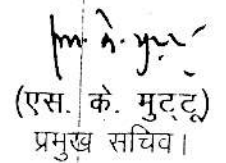 (एस. के. मुट्टू)
प्रमुख सचिव।